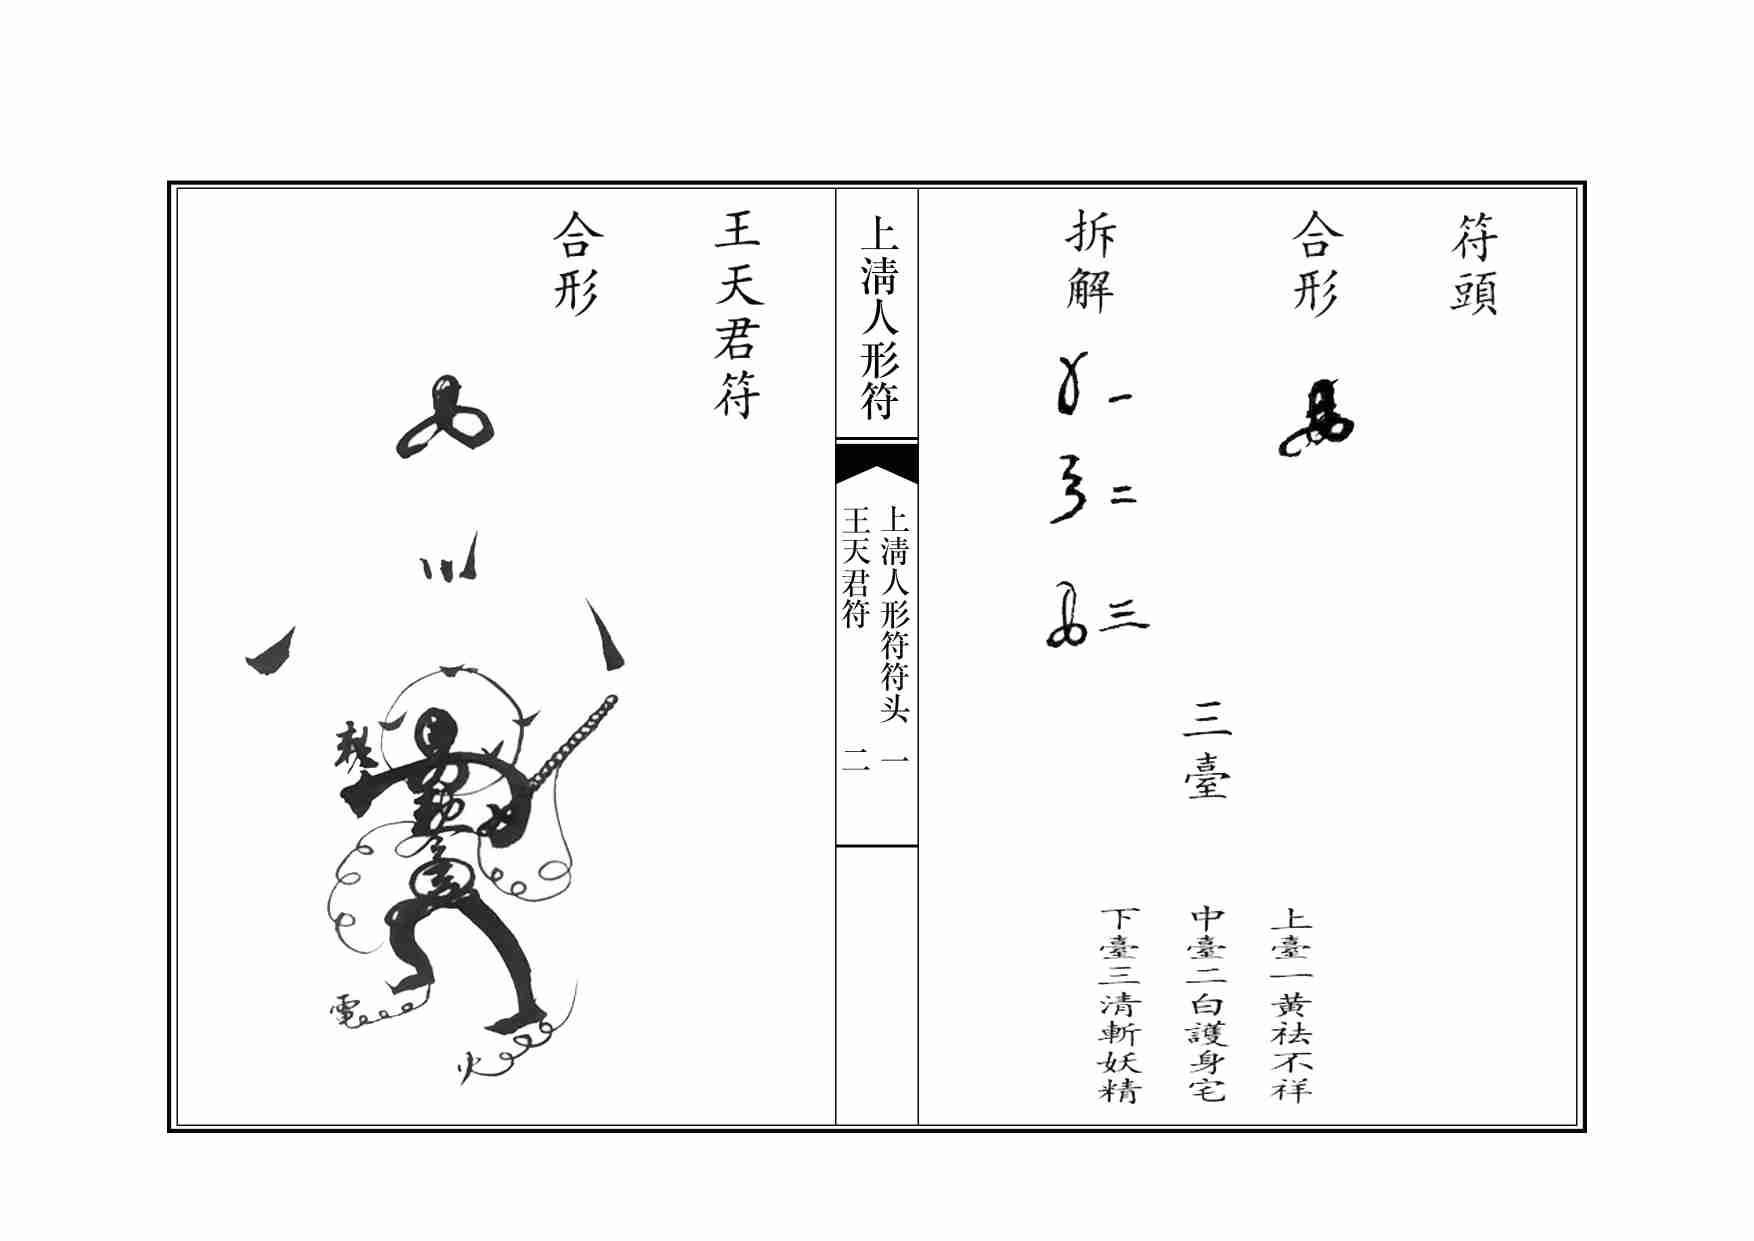 符頭
合形
拆解
一
二
三
三臺
上臺一黃祛不祥
中臺二白護身宅
下臺三清斬妖精
上淸人形符
上淸人形符符头 一
王天君符 二
王天君符
合形
電
火